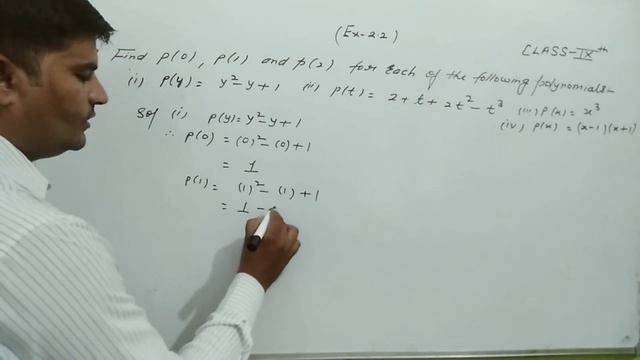 (Ex-2.2)
CLASS-IXth
Find P(0), P(1) and P(2) for Each of the following polynomials-
(i) P(y) = y²-y+1 (ii) P(t) = 2+t+2t²-t³ (iii) P(x) = x³
(iv) P(x) = (x-1)(x+1)
Sol (i) P(y) = y²-y+1
∴ P(0) = (0)²-(0)+1
= 1
P(1) = (1)²-(1)+1
= 1 -